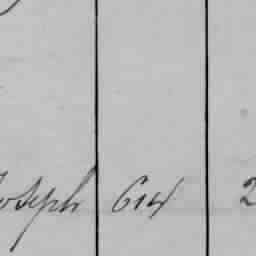 Joseph 614 2